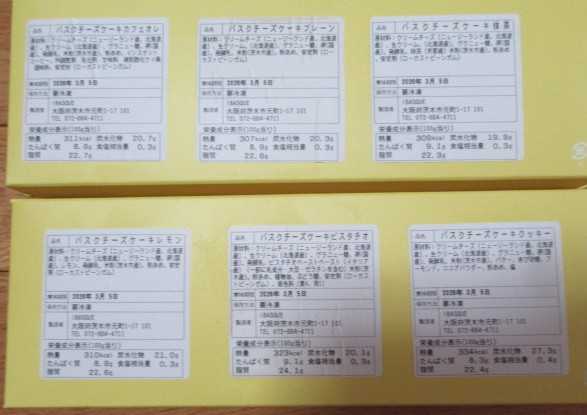 品名 バスクチーズケーキカフェオレ
原材料:クリームチーズ(ニュージーランド産、北海道
産)、生クリーム(北海道産)、グラニュー糖、卵(国
産)、発酵乳、米粉(茨木市産)
賞味期限 2026年 3月 5日
保存方法 要冷凍
製造者 IBASQUE
大阪府茨木市元町1-17 101
TEL 072-664-4711
栄養成分表示(100g当り)
熱量 311kcal 炭水化物 20.7g
たんぱく質 8.9g 食塩相当量 0.3g
脂質 22.7g
品名 バスクチーズケーキプレーン
原材料:クリームチーズ(ニュージーランド産、北海道
産)、生クリーム(北海道産)、グラニュー糖、卵(国
産)、発酵乳、米粉(茨木市産)、粉あめ、安定剤(ロー
カストビーンガム)
賞味期限 2026年 3月 5日
保存方法 要冷凍
製造者 IBASQUE
大阪府茨木市元町1-17 101
TEL 072-664-4711
栄養成分表示(100g当り)
熱量 307kcal 炭水化物 20.3g
たんぱく質 8.9g 食塩相当量 0.3g
脂質 22.6g
品名 バスクチーズケーキ抹茶
原材料:クリームチーズ(ニュージーランド産、北海道
産)、生クリーム(北海道産)、グラニュー糖、卵(国
産)、発酵乳、抹茶
安定剤(ローカストビーンガム)
賞味期限 2026年 3月 5日
保存方法 要冷凍
製造者 IBASQUE
大阪府茨木市元町1-17 101
TEL 072-664-4711
栄養成分表示(100g当り)
熱量 309kcal 炭水化物 19.9g
たんぱく質 9.1g 食塩相当量 0.3g
脂質 22.3g
品名 バスクチーズケーキレモン
原材料:クリームチーズ(ニュージーランド産、北海道
産)、生クリーム(北海道産)、グラニュー糖、卵(国
産)、レモン、発酵乳、米粉(茨木市産)、粉あめ、安定
剤(ローカストビーンガム)
賞味期限 2026年 3月 5日
保存方法 要冷凍
製造者 IBASQUE
大阪府茨木市元町1-17 101
TEL 072-664-4711
栄養成分表示(100g当り)
熱量 310kcal 炭水化物 21.0g
たんぱく質 8.9g 食塩相当量 0.3g
脂質 22.6g
品名 バスクチーズケーキピスタチオ
原材料:クリームチーズ(ニュージーランド産、北海道
産)、生クリーム(北海道産)、グラニュー糖、卵(国
産)、発酵乳、ピスタチオペースト(イタリア
産)(一部に乳成分・大豆・ゼラチンを含む)米粉(茨
木市産)、粉あめ、植物油、ぶどう糖、安定剤(ローカス
トビーンガム)
賞味期限 2026年 3月 5日
保存方法 要冷凍
製造者 IBASQUE
大阪府茨木市元町1-17 101
TEL 072-664-4711
栄養成分表示(100g当り)
熱量 323kcal 炭水化物 20.1g
たんぱく質 9.1g 食塩相当量 0.3g
脂質 24.1g
品名 バスクチーズケーキクッキー
原材料:クリームチーズ(ニュージーランド産、北海道
産)、生クリーム(北海道産)、グラニュー糖、卵(国
賞味期限 2026年 3月 5日
保存方法 要冷凍
製造者 IBASQUE
大阪府茨木市元町1-17 101
TEL 072-664-4711
栄養成分表示(100g当り)
熱量 334kcal 炭水化物 27.3g
たんぱく質 8.3g 食塩相当量 0.4g
脂質 22.4g